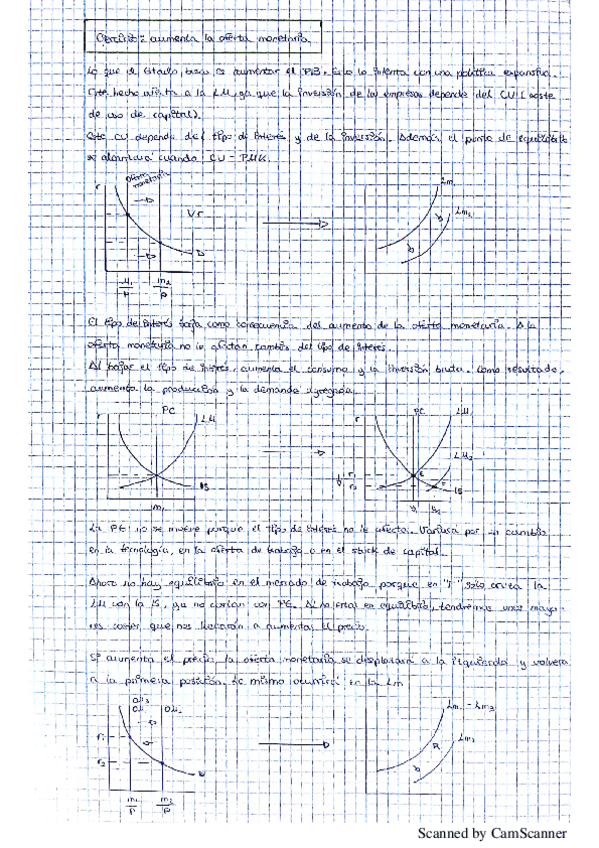 aumenta la oferta monetaria
Lo que el Estado busca es aumentar el PIB. Esto lo intenta con una política expansiva.
Este hecho afecta a la LM, ya que la inversión de las empresas depende del CU (coste
de uso de capital).
Este CU depende del tipo de interés y de la inversión. Además, el punto de equilibrio
se alcanzará cuando CU = PMK.
Oferta
monetaria
r
D
M1
P
M2
P
Lm
Lm1
El tipo de interés baja como consecuencia del aumento de la oferta monetaria. A la
oferta monetaria no le afectan cambios del tipo de interés.
Al bajar el tipo de interés, aumenta el consumo y la inversión bruta. Como resultado,
aumenta la producción y la demanda agregada.
r
PC
LM
IS
r
PC
LM
LM2
r1
r2
E
F
IS
Y1
Y2
La PC no se mueve porque el tipo de interés no le afecta. Variará por un cambio
en la tecnología, en la oferta de trabajo o en el stock de capital.
Ahora no hay equilibrio en el mercado de trabajo, porque en "F" solo cruza la
LM con la IS, ya no cortan con PC. Al no estar en equilibrio, tendremos unos mayo-
res costes, que nos llevarán a aumentar el precio.
Si aumenta el precio, la oferta monetaria se desplazará a la izquierda y volverá
a la primera posición. Lo mismo ocurrirá en la Lm
r1
r2
M1
P
M2
P
Lm1 - Lm3
Lm2
Scanned by CamScanner